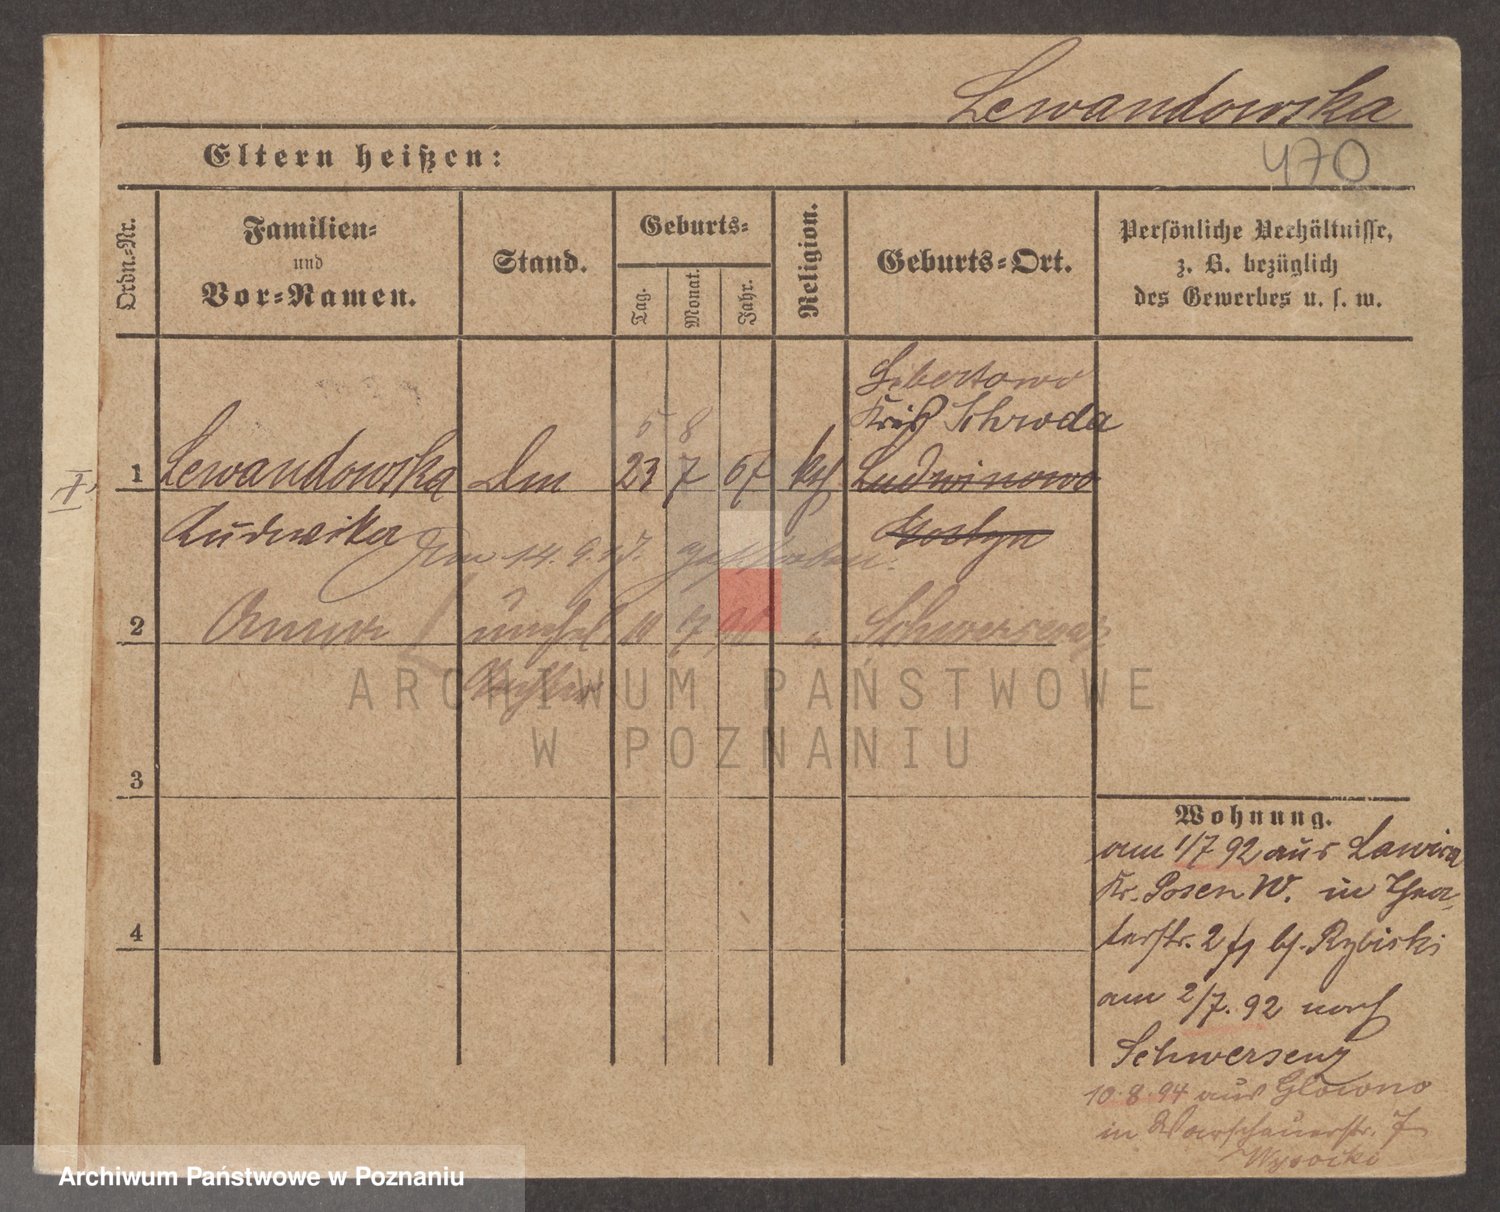 Lewandowska
Eltern heißen:
470
Ordn.-Nr.
Familien-
und
Vor-Namen.
Stand.
Geburts-
Tag.
Monat.
Jahr.
Religion.
Geburts-Ort.
Persönliche Verhältnisse,
z. B. bezüglich
des Gewerbes u. s. w.
Kreis Schroda
5 8
1 Lewandowska Dm 23 7 67 kth Ludwinowo
Ludwika
Am 14. 9. gestorben.
2 unehel 10 7 Schwersenz
Tochter
ARCHIWUM PAŃSTWOWE
W POZNANIU
3
4
Wohnung.
am 1/7 92 aus Lawica
Kr. Posen W. in Thea-
terstr. 2 b/. Rybicki
am 2/7. 92 nach
Schwersenz
10.8.94 aus Glowno
in Warschauerstr. 7
Wysocki
Archiwum Państwowe w Poznaniu